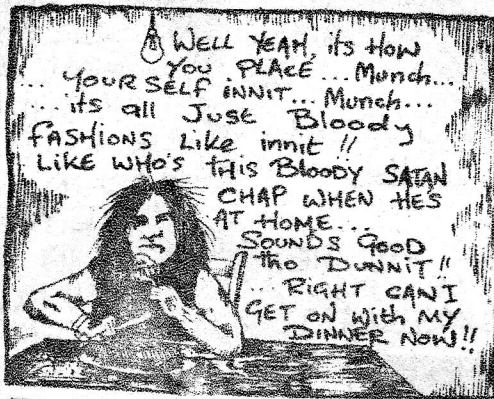 WELL YEAH, its HOW
YOU PLACE... Munch...
... YOURSELF INNIT... Munch...
... its all JUST Bloody
FASHIONS Like innit !!
LIKE WHO'S THIS BLOODY SATAN
CHAP WHEN HE'S
AT HOME...
SOUNDS GOOD
tho DUNNIT !!
... RIGHT CAN I
GET ON WITH MY
DINNER NOW !!